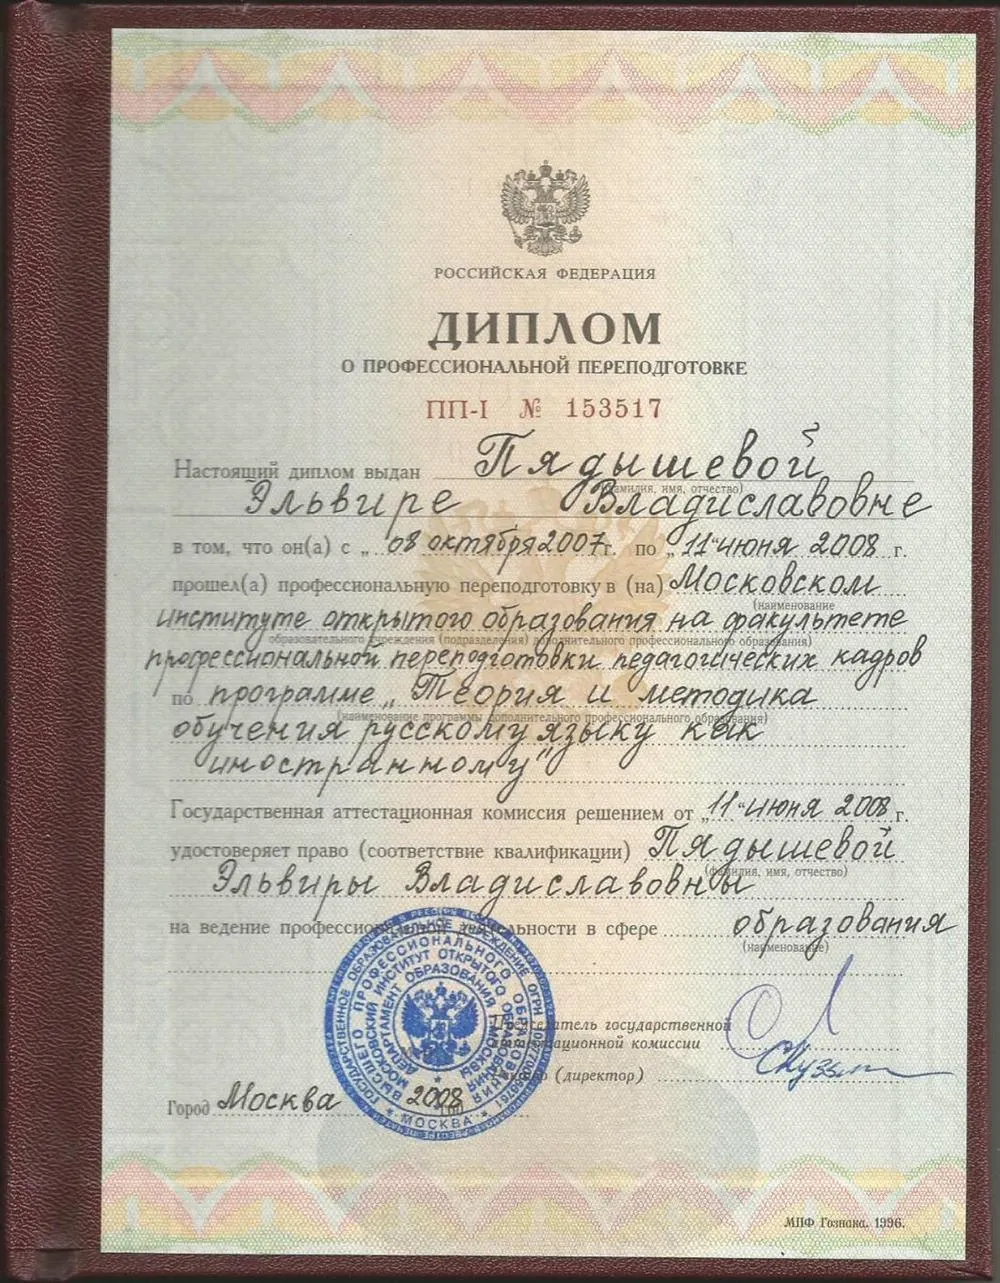 РОССИЙСКАЯ ФЕДЕРАЦИЯ
ДИПЛОМ
О ПРОФЕССИОНАЛЬНОЙ ПЕРЕПОДГОТОВКЕ
ПП-I № 153517
Настоящий диплом выдан Пядышевой
(фамилия, имя, отчество)
Эльвире Владиславовне
в том, что он(а) с „ 08 октября 2007 г. по „11“ июня 2008 г.
прошел(а) профессиональную переподготовку в (на) Московском
(наименование
институте открытого образования на факультете
образовательного учреждения (подразделения) дополнительного профессионального образования)
профессиональной переподготовки педагогических кадров
по программе „Теория и методика
(наименование программы дополнительного профессионального образования)
обучения русскому языку как
иностранному"
Государственная аттестационная комиссия решением от „11“ июня 2008 г.
удостоверяет право (соответствие квалификации) Пядышевой
(фамилия, имя, отчество)
Эльвиры Владиславовны
на ведение профессиональной деятельности в сфере образования
(наименование)
Председатель государственной
аттестационной комиссии
(директор)
Город Москва 2008
ВЫСШЕГО ПРОФЕССИОНАЛЬНОГО ОБРАЗОВАНИЯ
МОСКОВСКИЙ ИНСТИТУТ ОТКРЫТОГО ОБРАЗОВАНИЯ
ДЕПАРТАМЕНТ ОБРАЗОВАНИЯ МОСКВЫ
МОСКВА
МПФ Гознака. 1996.